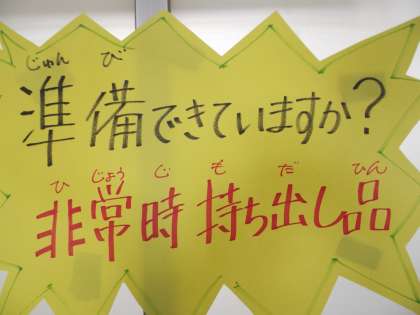 じゅん び
準備できていますか?
ひ じょう じ も だ ひん
非常時持ち出し品